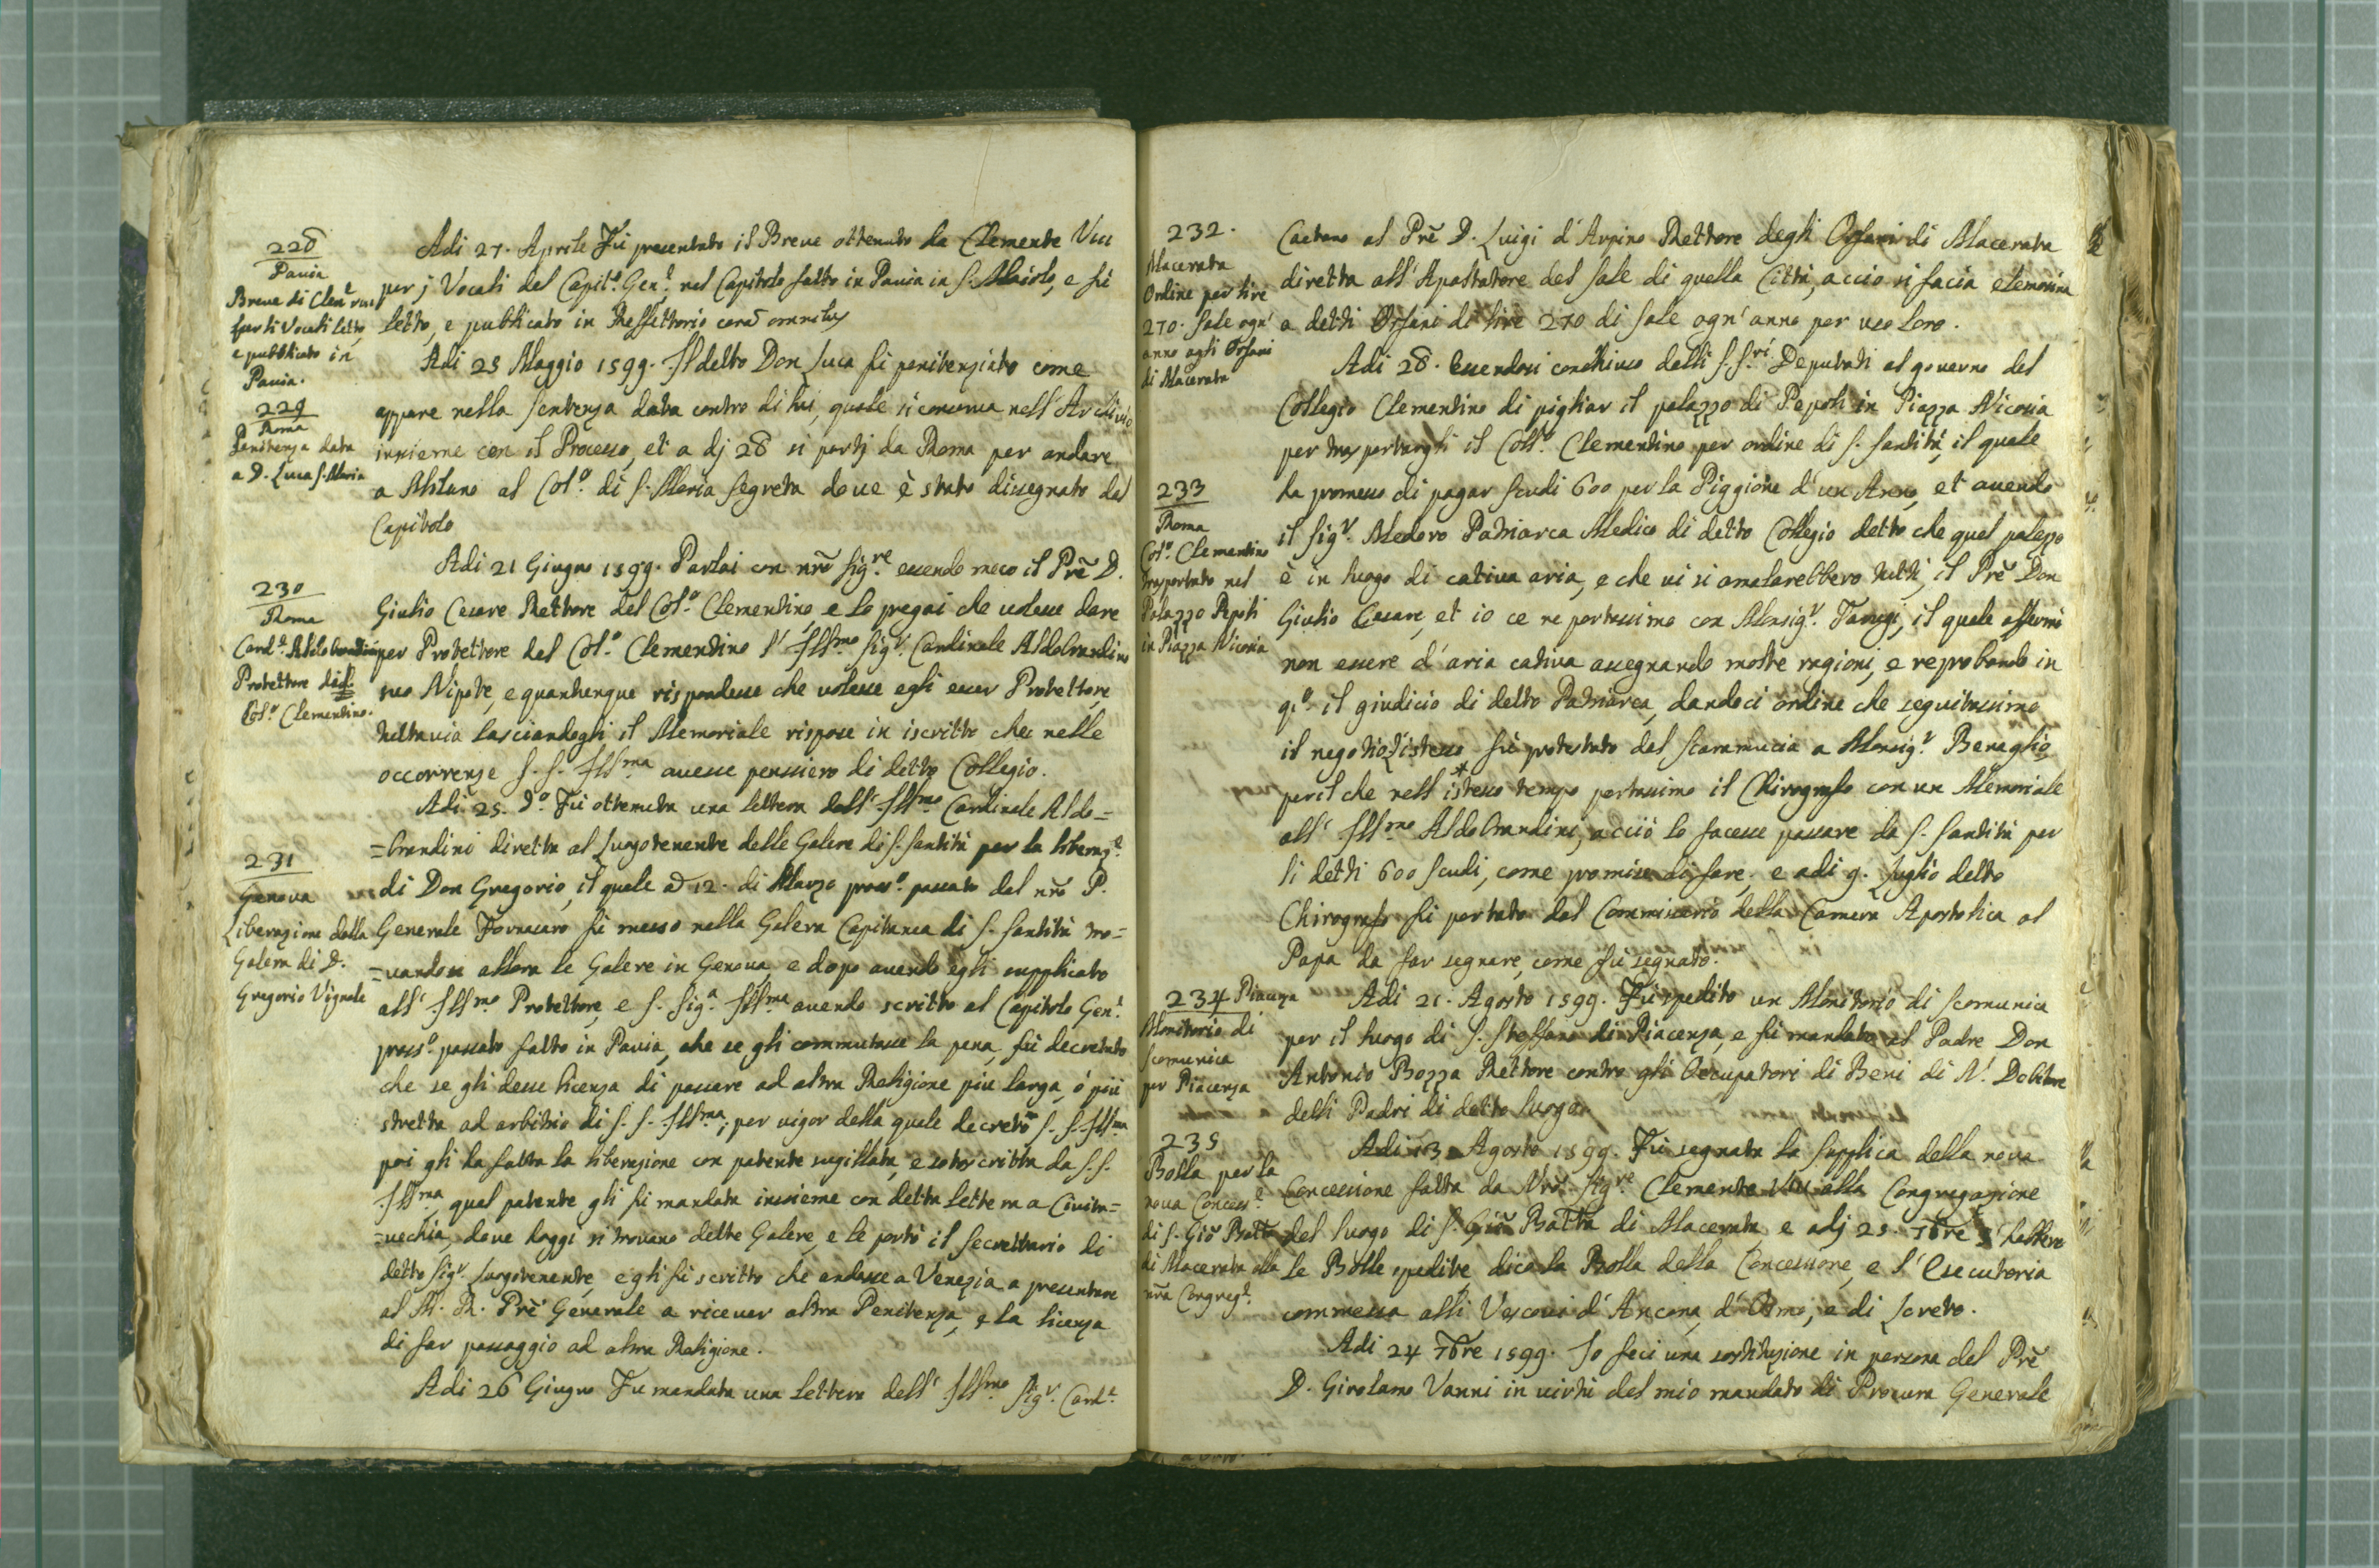 228
Pauia
Breue di Clem.e viii
per li Vocali letto,
e pubblicato in
Pauia.
Adi 27. Aprile Fù presentato il Breue ottenuto da Clemente Viii
per j Vocali del Capit.o Gen.e nel Capitolo fatto in Pauia in S. Maiolo, e fù
letto, e pubblicato in Reffettorio corã omnibus
229
Roma
Penitenza data
a D. Luca S. Maria
Adi 25 Maggio 1599. Il detto Don Luca fù penitenziato come
appare nella sentenza data contro di lui, quale si conserua nell'Archiuio
insieme con il Processo, et a dj 28 si partj da Roma per andare
a Milano al Col.o di S. Maria Segreta doue è stato dissegnato dal
Capitolo
230
Roma
Card.e Aldobrandini
Protettore del
Col.o Clementino.
Adi 21 Giugno 1599. Parlai con nrõ Sig.re essendo meco il Prẽ D.
Giulio Cesare Rettore del Col.o Clementino, e lo pregai che uolesse dare
per Protettore del Col.o Clementino l' Ill.mo Sig.r Cardinale Aldobrandino
suo Nipote, e quantunque rispondesse che uolesse egli esser Protettore,
tuttauia lasciandogli il Memoriale rispose in iscritto che nelle
occorrenze S. S. Ill.ma auesse pensiero di detto Collegio.
231
Genoua
Liberazione dalla
Galera di D.
Gregorio Vignale
Adi 25. d.o Fù ottenuta una lettera dall' Ill.mo Cardinale Aldo=
=brandini diretta al Luogotenente delle Galere di S. Santità per la liberaz.e
di Don Gregorio, il quale a 12. di Marzo pross.o passato dal nrõ P.
Generale Fornasaro fù messo nella Galera Capitanea di S. Santità tro=
=uandosi allora le Galere in Genoua, e dopo auendo egli supplicato
all' Ill.mo Protettore, e S. Sig.a Ill.ma auendo scritto al Capitolo Gen.e
pross.o passato fatto in Pauia, che se gli commutasse la pena, fù decretato
che se gli desse licenza di passare ad altra Religione più larga, ó più
stretta ad arbitrio di S. S. Ill.ma; per uigor della quale decretõ S. S. Ill.ma
poi gli ha fatta la liberazione con patente sugillata, e sotoscritta da S. S.
Ill.ma, qual patente gli fù mandata insieme con detta lettera a Ciuita=
=uechia, doue hoggi si trouano dette Galere, e le portò il Secrettario di
detto Sig.r Luogotenente, e gli fù scritto che andasse a Venezia a presentare
al M. R. Prẽ Generale a riceuer altra Penitenza, e la licenza
di far passaggio ad altra Religione.
Adi 26 Giugno Fù mandata una lettera dell' Ill.mo Sig.r Card.e
232.
Macerata
Ordine per lire
270. sale ogn'
anno agli Orfani
di Macerata
Caetano al Prẽ D. Luigi d'Arpino Rettore degli Orfani di Macerata
diretta all'Apaltatore del sale di quella Città, acciò si facia elemosina
a detti Orfani di lire 270 di sale ogn'anno per uso loro.
233
Roma
Col.o Clementino
trasportato nel
Palazzo Pepoli
in Piazza Nicosia
Adi 28. Essendosi conchiuso dalli S.S.ri Deputati al gouerno del
Collegio Clementino di pigliar il palazzo di Pepoli in Piazza Nicosia
per trasportargli il Coll.o Clementino per ordine di S. Santità, il quale
ha promesso di pagar scudi 600 per la Piggione d'un Anno, et auendo
il Sig.r Medoro Patriarca Medico di detto Collegio detto che quel palazzo
è in luogo di catiua aria, e che ui si amalarebbero tutti, il Prẽ Don
Giulio Cesare, et io ce ne portassimo con Monsig.r Tarugi, il quale affermò
non essere d'aria catiua assegnando molte ragioni, e reprobando in
q.o il giudicio di detto Patriarca, dandoci ordine che seguitassimo
il negotio, l'istesso fù protestato dal Scaramucia a Monsig.r Benaglio,
peril che nell'istesso tempo portassimo il Chirografo con un Memoriale
all' Ill.mo Aldobrandini, acciò lo facesse passare da S. Santità per
li detti 600 scudi, come promise di fare, e adi 9. Luglio detto
Chirografo fù portato dal Commissario della Camera Apostolica al
Papa da far segnare, come fù segnato.
234 Piacenza
Monitorio di
scomunica
per Piacenza
Adi 21. Agosto 1599. Fù spedito un Monitorio di scomunica
per il luogo di S. Steffano di Piacenza, e fù mandato al Padre Don
Antonio Bozza Rettore contro gli Occupatori di Beni di N.
delli Padri di detto luogo.
235
Bolla per la
noua Concess.e
di S. Giõ Batta
di Macerata alla
nrã Congreg.e
Adi 13 Agosto 1599. Fù segnata la Supplica della noua
Concessione fatta da Nrõ Sig.re Clemente Viii alla Congregazione
del luogo di S. Giõ Batta di Macerata e adj 25. 7bre
le Bolle spedite, dico la Bolla della Concessione, e l'Esecutoria
commessa alli Vescoui d'Ancona, d'Osmo, e di Loreto.
Adi 24 7bre 1599. Io feci una sostituzione in persona del Prẽ
D. Girolamo Vanni in uirtù del mio mandato di Procura Generale